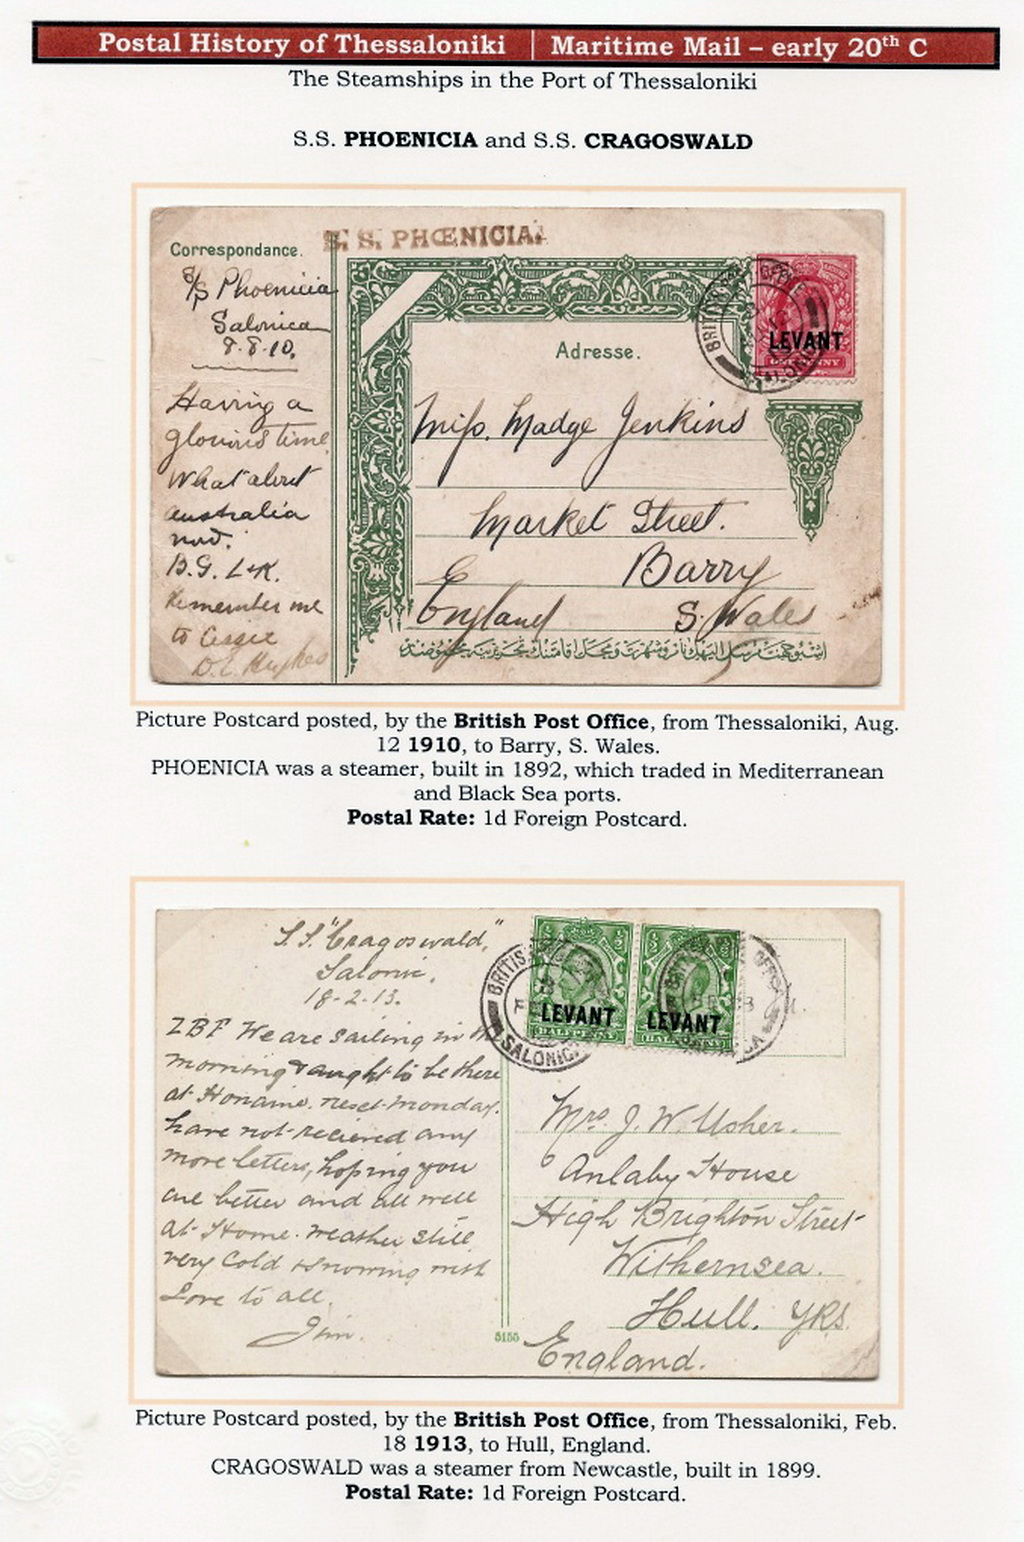 Postal History of Thessaloniki | Maritime Mail – early 20th C
The Steamships in the Port of Thessaloniki
S.S. PHOENICIA and S.S. CRAGOSWALD
S. S. PHŒNICIA.
Correspondance.
S/S Phoenicia
Salonica
8.8.10.
Having a
glorious time.
What about
Australia
now.
B.G. L & K.
Remember me
to
D.E. Hughes
BRITISH POST OFFICE
SALONICA
LEVANT
ONE PENNY
Adresse.
Miss. Madge Jenkins
Market Street.
Barry
England S. Wales
Picture Postcard posted, by the British Post Office, from Thessaloniki, Aug.
12 1910, to Barry, S. Wales.
PHOENICIA was a steamer, built in 1892, which traded in Mediterranean
and Black Sea ports.
Postal Rate: 1d Foreign Postcard.
S.S. "Cragoswald,"
Salonic,
18-2-13.
We are sailing in the
morning & aught to be there
at Honaine. next monday.
have not recieved any
more letters, hoping you
are better and all well
at Home. weather still
very cold & snowing with
Love to all.
Jim.
BRITISH POST OFFICE
SALONICA
LEVANT
HALFPENNY
LEVANT
HALFPENNY
Mrs. J. W. Usher.
Anlaby House
High Brighton Street
Withernsea.
Hull. Yks.
England.
5155
Picture Postcard posted, by the British Post Office, from Thessaloniki, Feb.
18 1913, to Hull, England.
CRAGOSWALD was a steamer from Newcastle, built in 1899.
Postal Rate: 1d Foreign Postcard.